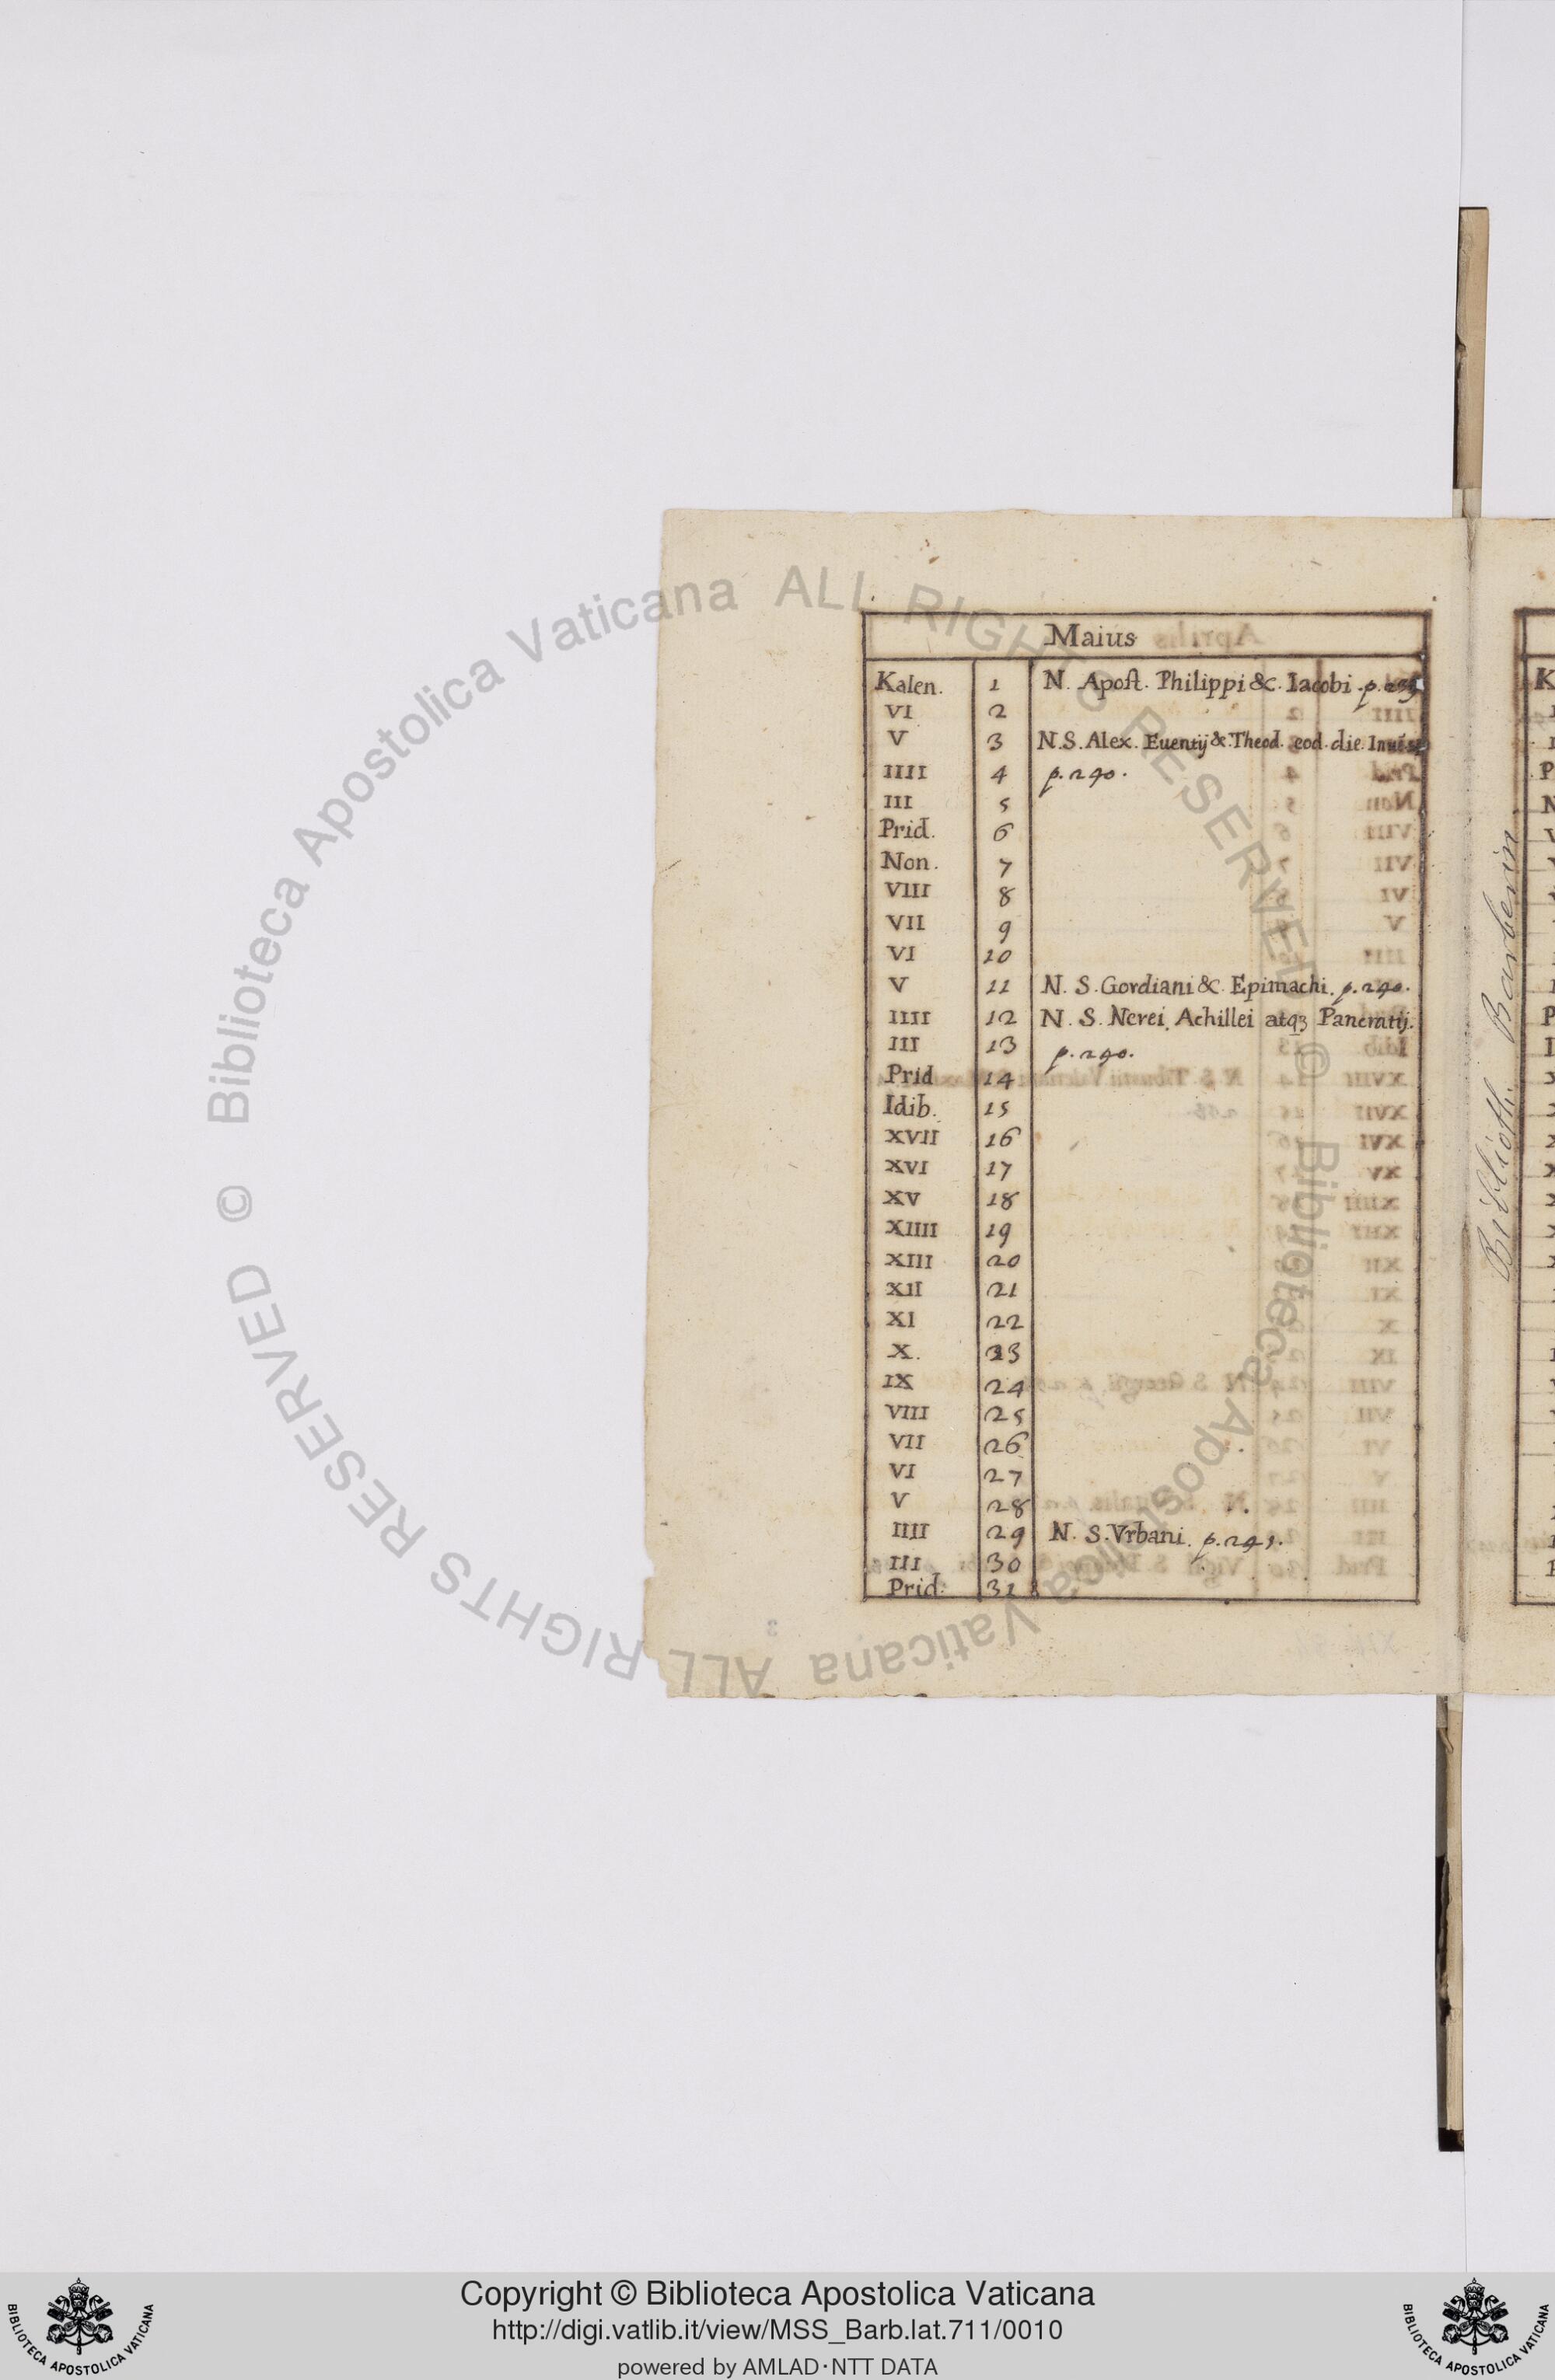 Maius
Kalen. 1 N. Apost. Philippi &c. Iacobi. p. 239
VI 2
V 3 N. S. Alex. Euentij &. Theod. eod. die.
IIII 4 p. 240.
III 5
Prid. 6
Non. 7
VIII 8
VII 9
VI 10
V 11 N. S. Gordiani &c. Epimachi. p. 240.
IIII 12 N. S. Nerei Achillei atq3 Pancratij.
III 13 p. 240.
Prid 14
Idib. 15
XVII 16
XVI 17
XV 18
XIIII 19
XIII 20
XII 21
XI 22
X. 23
IX 24
VIII 25
VII 26
VI 27
V 28
IIII 29 N. S. Vrbani. p. 241.
III 30
Prid. 31
Biblioth. Barberin
© Biblioteca Apostolica Vaticana ALL RIGHTS RESERVED © Biblioteca Apostolica Vaticana ALL RIGHTS RESERVED
Copyright © Biblioteca Apostolica Vaticana
http://digi.vatlib.it/view/MSS_Barb.lat.711/0010
powered by AMLAD·NTT DATA
BIBLIOTECA APOSTOLICA VATICANA
BIBLIOTECA APOSTOLICA VATICANA